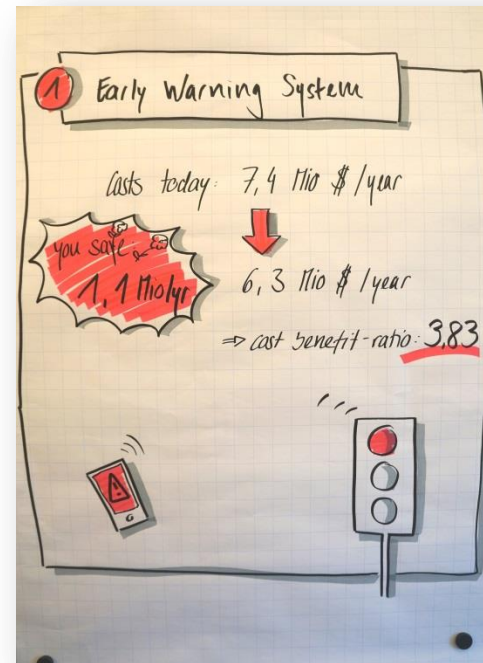 1 Early Warning System
Costs today: 7,4 Mio $ /year
you safe:
1,1 Mio/yr
6,3 Mio $ /year
⇒ cost benefit-ratio: 3,83